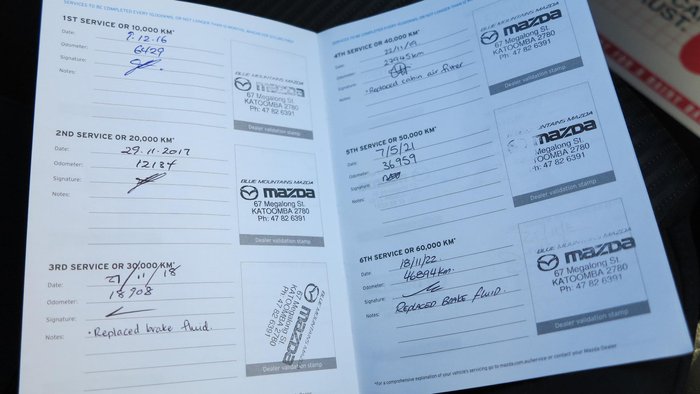 SERVICES TO BE COMPLETED EVERY 10,000KMS, OR NOT LONGER THAN 12 MONTHS, WHICHEVER OCCURS FIRST
1ST SERVICE OR 10,000 KM*
Date: 9.12.16
Odometer: 6429
Signature:
Notes:
BLUE MOUNTAINS MAZDA
mazda
67 Megalong St.
KATOOMBA 2780
Ph: 47 82 6391
Dealer validation stamp
2ND SERVICE OR 20,000 KM*
Date: 29.11.2017
Odometer: 12184
Signature:
Notes:
BLUE MOUNTAINS MAZDA
mazda
67 Megalong St.
KATOOMBA 2780
Ph: 47 82 6391
Dealer validation stamp
3RD SERVICE OR 30,000 KM*
Date: 27/11/18
Odometer: 18908
Signature:
Notes: · Replaced brake fluid.
BLUE MOUNTAINS MAZDA
mazda
67 Megalong St.
KATOOMBA 2780
PH: 47 82 6391
Dealer validation stamp
4TH SERVICE OR 40,000 KM*
Date: 22/11/19
Odometer: 23945km
Signature:
Notes: · Replaced cabin air filter
BLUE MOUNTAINS MAZDA
mazda
67 Megalong St.
KATOOMBA 2780
Ph: 47 82 6391
Dealer validation stamp
5TH SERVICE OR 50,000 KM*
Date: 7/5/21
Odometer: 36959
Signature:
Notes:
UNTAINS MAZDA
mazda
long St.
TOOMBA 2780
Ph: 47 82 6391
Dealer validation stamp
6TH SERVICE OR 60,000 KM*
Date: 18/11/22
Odometer: 46894km.
Signature:
Notes: REPLACED BRAKE FLUID.
BLUE MOUNTAINS MAZDA
mazda
67 Megalong St.
KATOOMBA 2780
Ph: 47 82 6391
Dealer validation stamp
*For a comprehensive explanation of your vehicles servicing go to mazda.com.au/service or contact your Mazda Dealer.